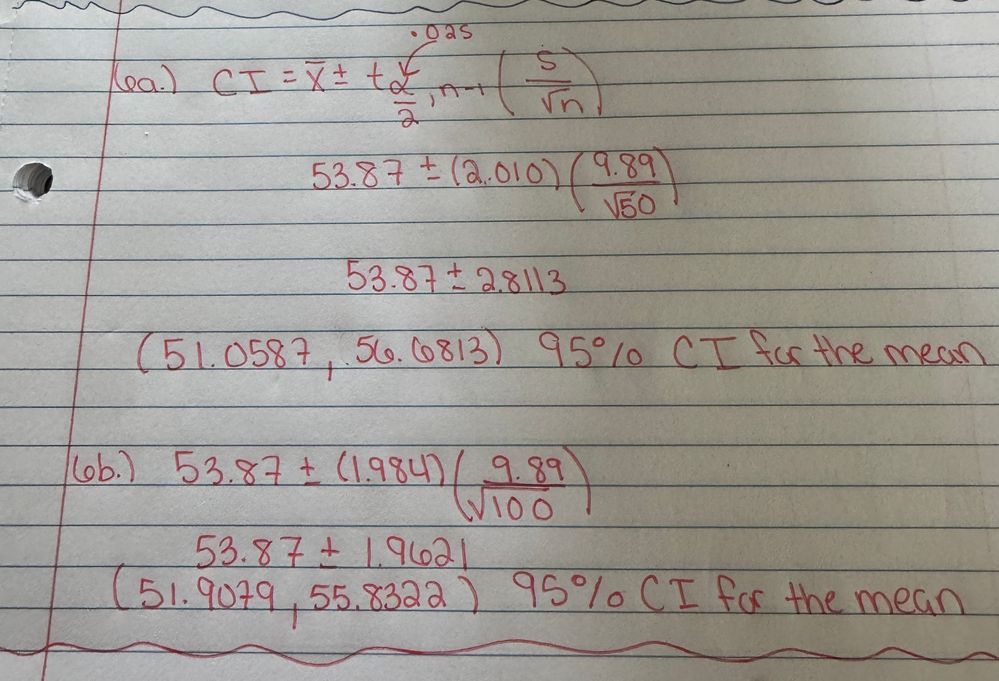 .025
6a.) CI = x̄ ± t α/2, n-1 (s/√n)
53.87 ± (2.010) (9.89/√50)
53.87 ± 2.8113
(51.0587, 56.6813) 95% CI for the mean
6b.) 53.87 ± (1.984) (9.89/√100)
53.87 ± 1.9621
(51.9079, 55.8322) 95% CI for the mean